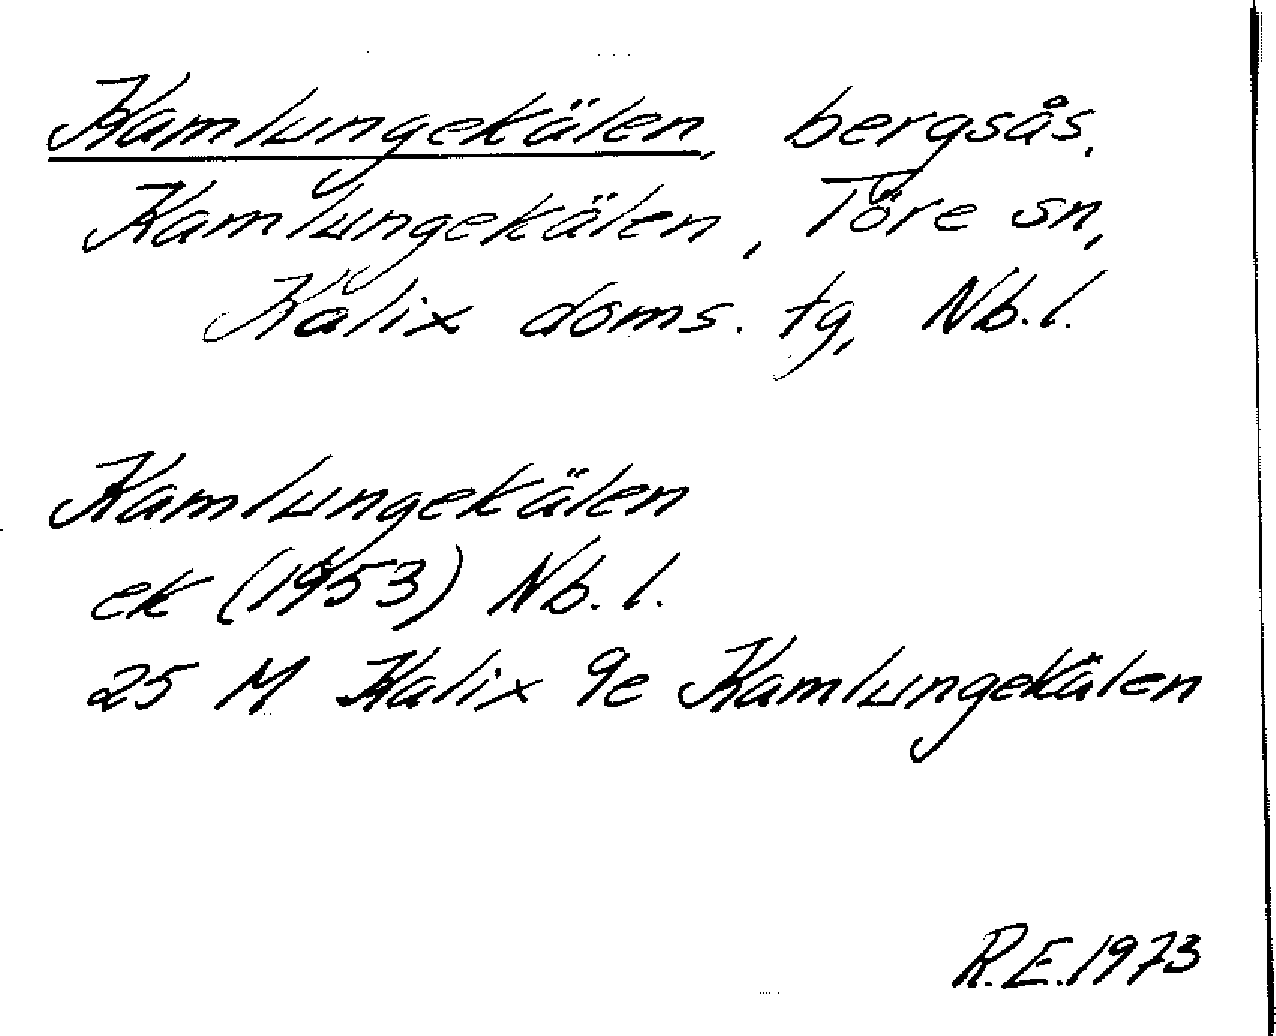 Kamlungekälen, bergsås,
Kamlungekälen, Töre sn,
Kalix doms. tg, Nb.l.
Kamlungekälen
ek (1953) Nb.l.
25 M Kalix 9e Kamlungekälen
R.E.1973